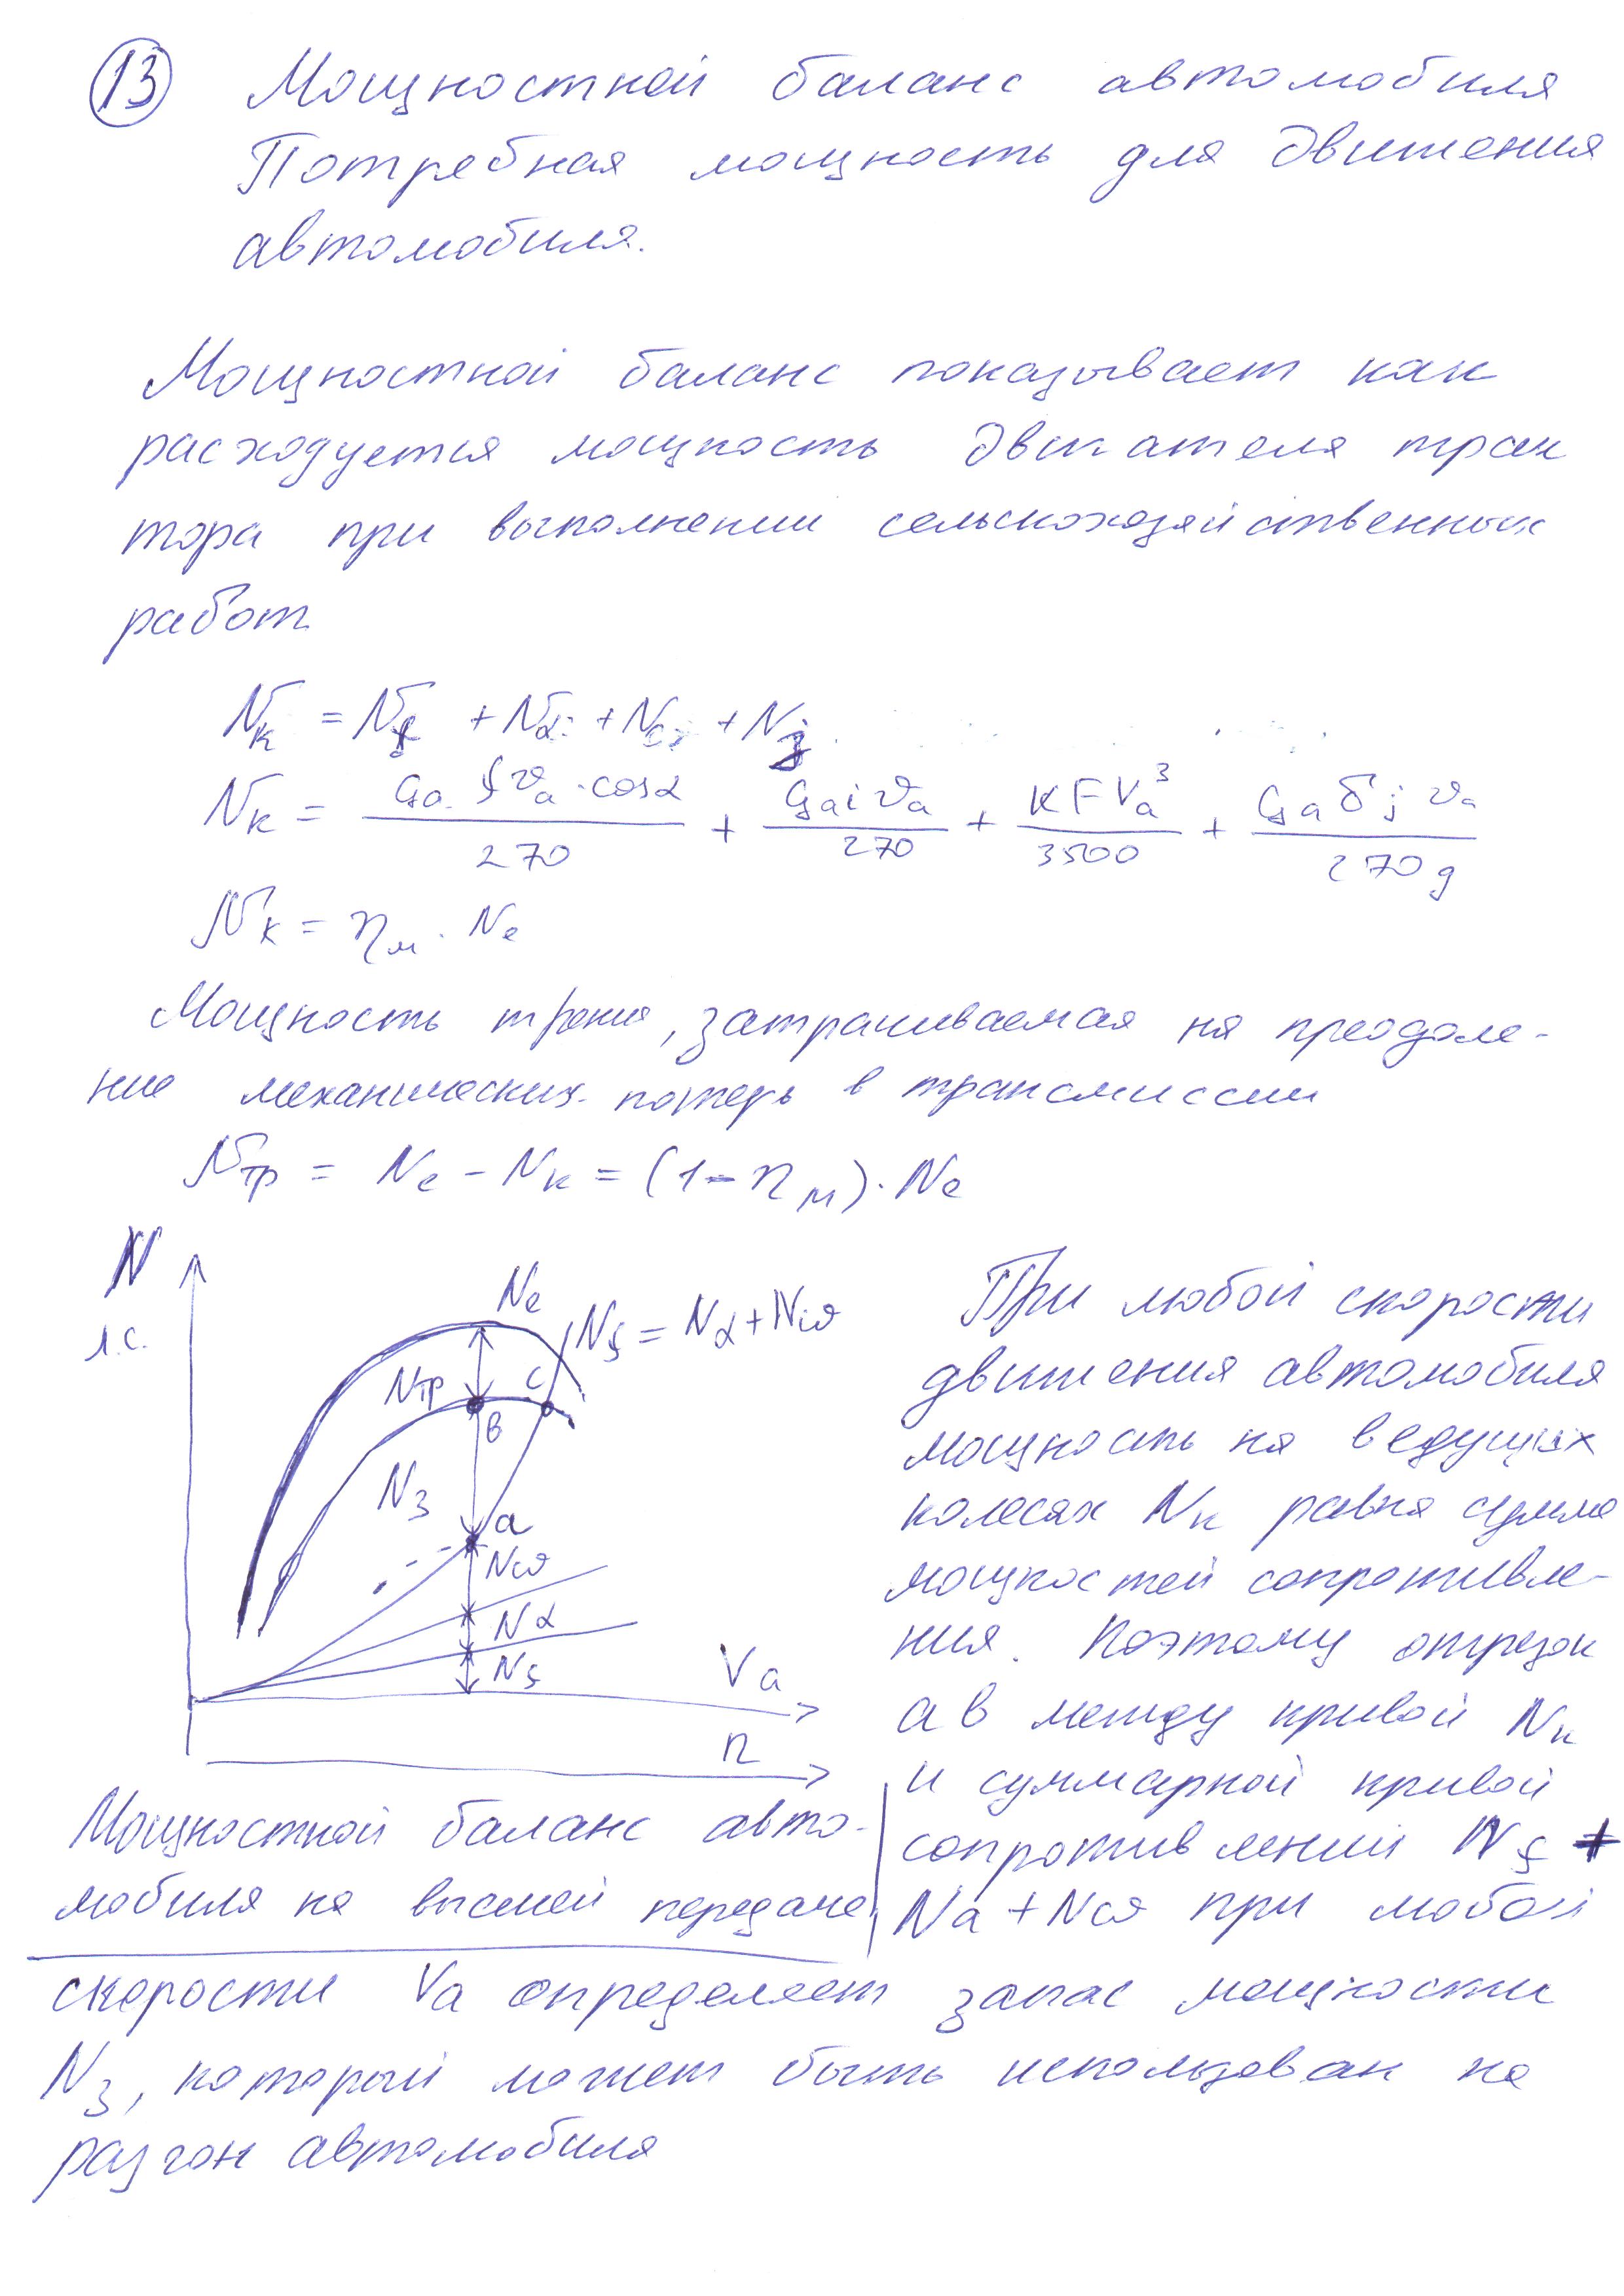 13 Мощностной баланс автомобиля
Потребная мощность для движения
автомобиля.
Мощностной баланс показывает как
расходуется мощность двигателя трак
тора при выполнении сельскохозяйственных
работ
Nк = Nf + Nα + Nω + Nj
Nк = Ga f va · cosα / 270 + Ga i va / 270 + KFVa³ / 3500 + Ga δ j va / 270 g
Nк = ηм · Ne
Мощность трения, затрачиваемая на преодоле-
ние механических потерь в трансмиссии
Nтр = Ne - Nк = (1 - ηм) · Ne
N
л.с.
Ne
Nf = Nα + Nω
Nтр
c
в
Nз
a
Nω
Nα
Nf
Va
n
Мощностной баланс авто-
мобиля на высшей передаче
При любой скорости
движения автомобиля
мощность на ведущих
колесах Nк равна сумме
мощностей сопротивле-
ния. Поэтому отрезок
ав между кривой Nк
и суммарной кривой
сопротивлений Nf +
Na + Nω при любой
скорости Va определяет запас мощности
Nз, который может быть использован на
разгон автомобиля